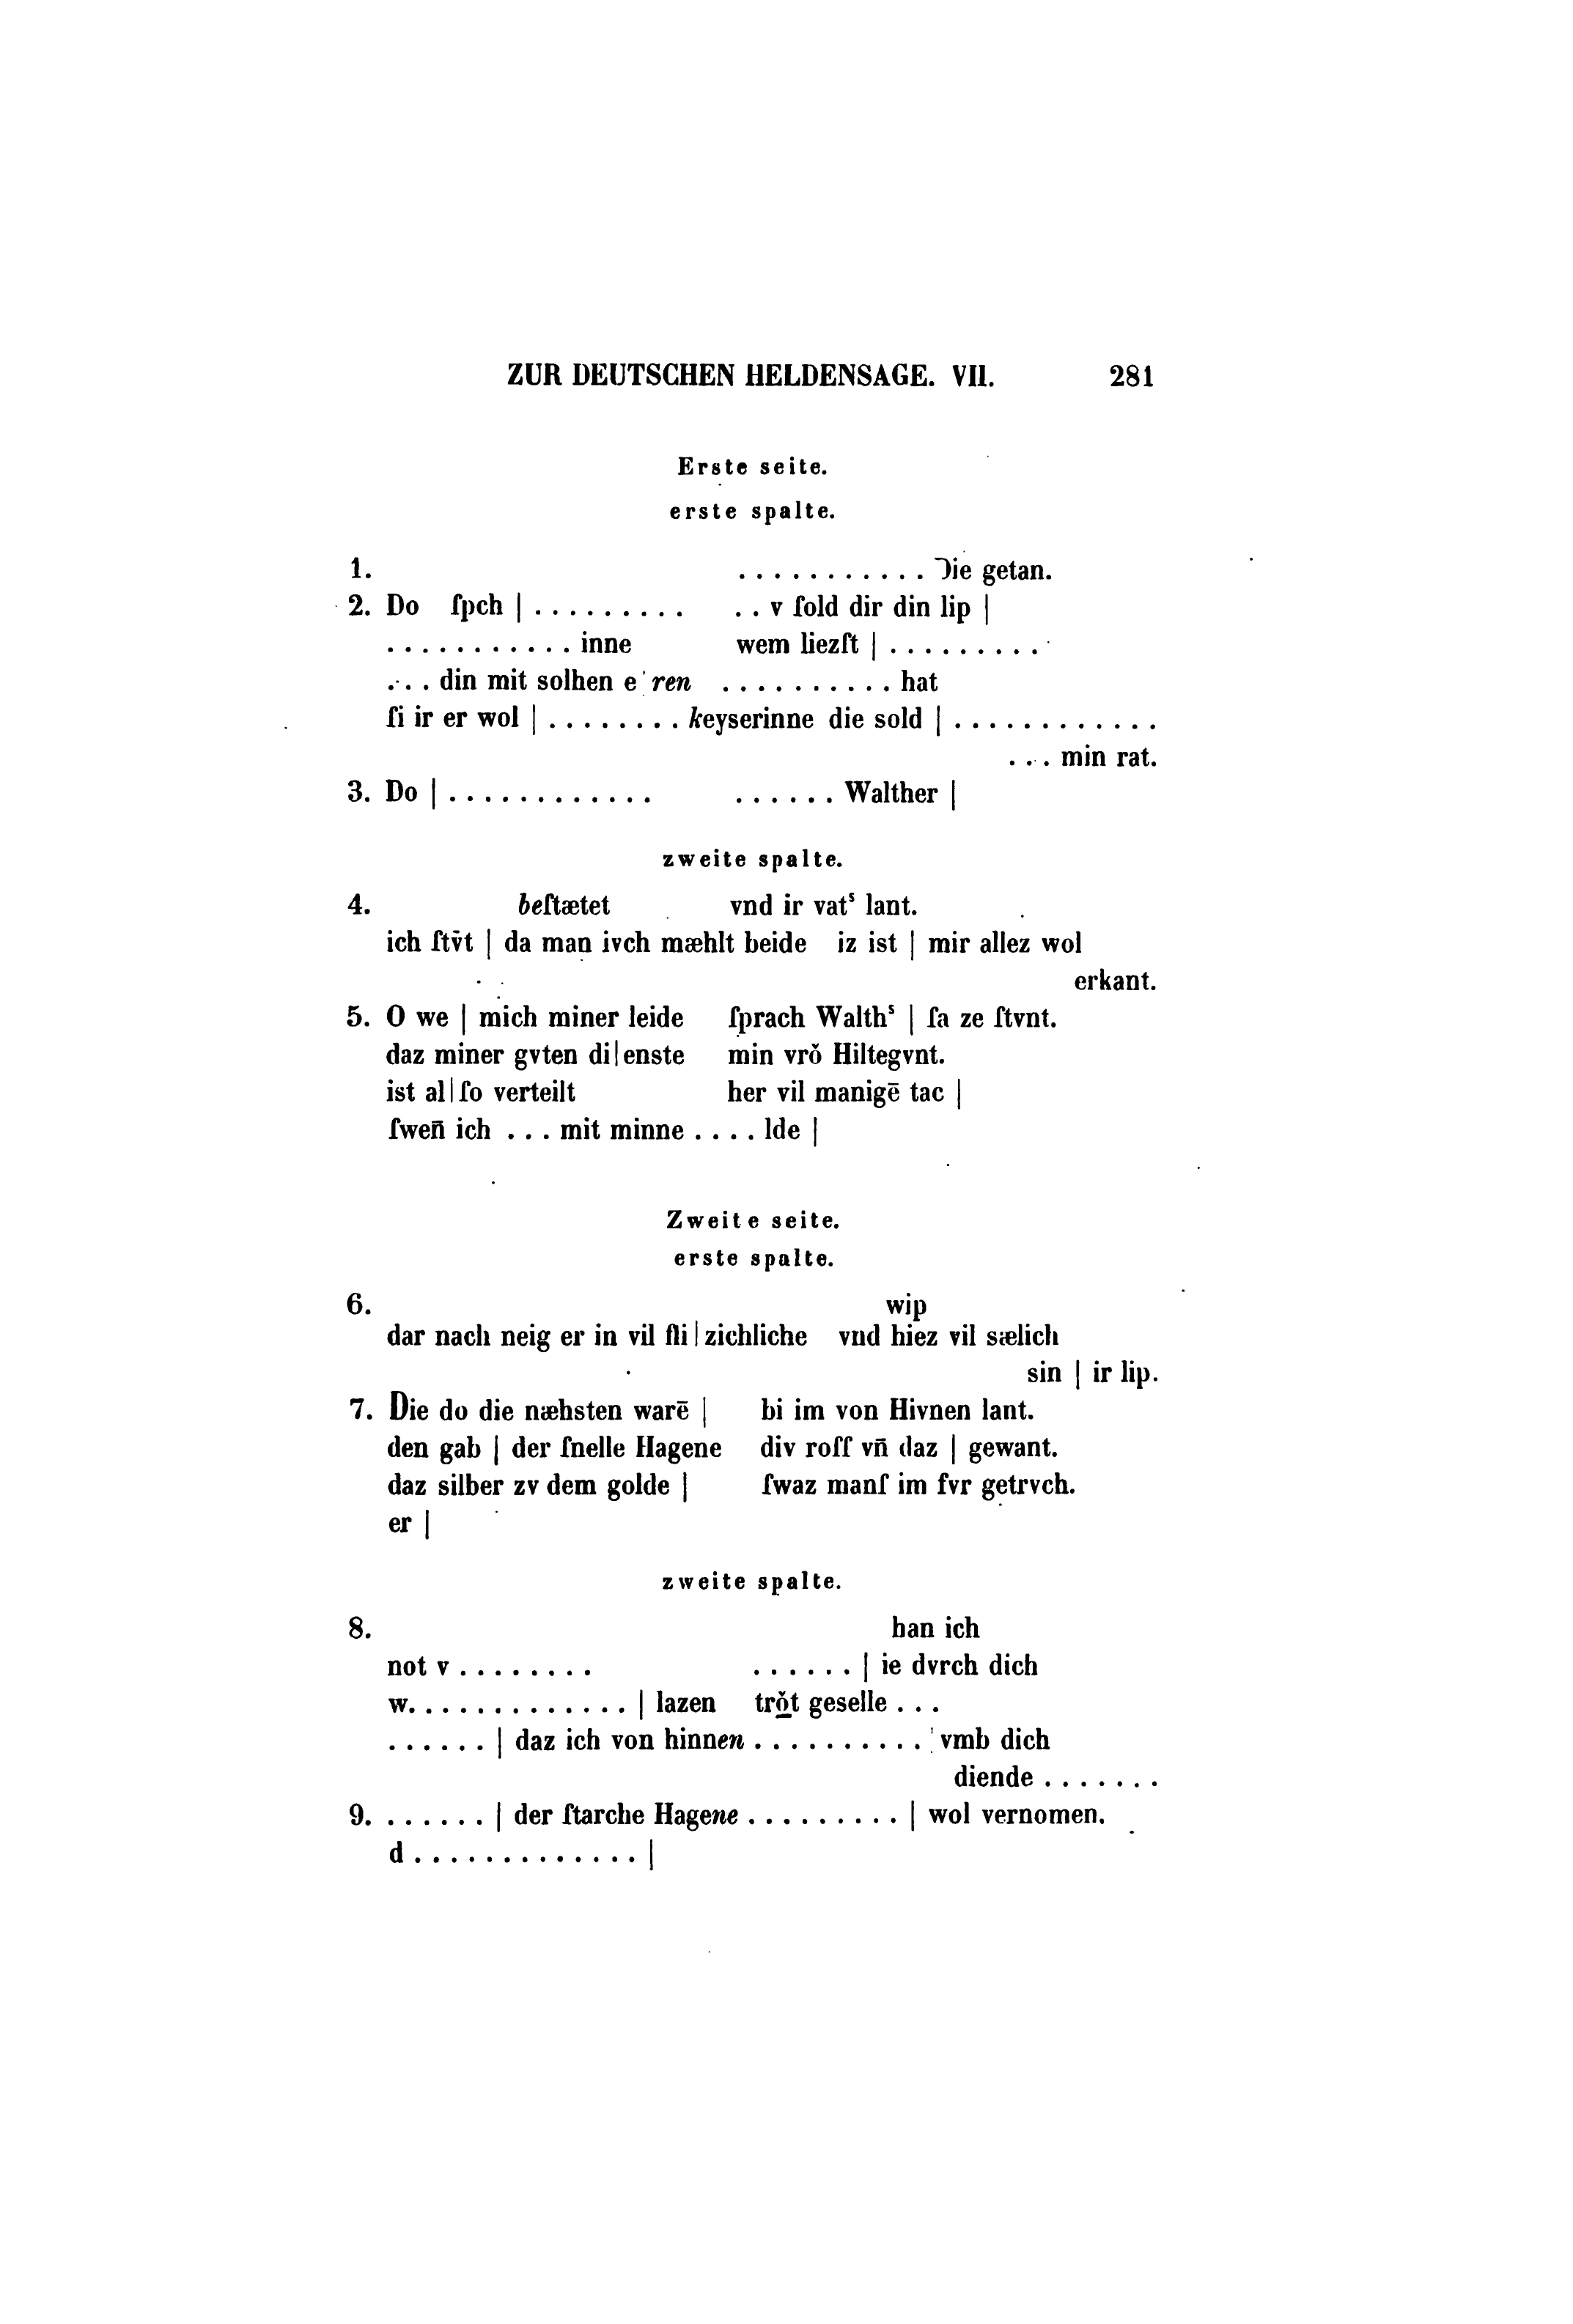 ZUR DEUTSCHEN HELDENSAGE. VII. 281
Erste seite.
erste spalte.
1. . . . . . . . . . . . Die getan.
2. Do ſpch | . . . . . . . . . . . v ſold dir din lip |
. . . . . . . . . . . inne wem liezſt | . . . . . . . . .
. . . din mit solhen e ren . . . . . . . . . . hat
ſi ir er wol | . . . . . . . . keyserinne die sold | . . . . . . . . . . . .
. . . min rat.
3. Do | . . . . . . . . . . . . . . . . . . Walther |
zweite spalte.
4. beſtætet vnd ir vatˢ lant.
ich ſtv̄t | da man ivch mæhlt beide iz ist | mir allez wol
erkant.
5. O we | mich miner leide ſprach Walthˢ | ſa ze ſtvnt.
daz miner gvten di|enste min vrǒ Hiltegvnt.
ist al|ſo verteilt her vil manigē tac |
ſwen̄ ich . . . mit minne . . . . lde |
Zweite seite.
erste spalte.
6. wip
dar nach neig er in vil fli|zichliche vnd hiez vil sælich
sin | ir lip.
7. Die do die næhsten warē | bi im von Hivnen lant.
den gab | der ſnelle Hagene div roſſ vn̄ daz | gewant.
daz silber zv dem golde | ſwaz manſ im fvr getrvch.
er |
zweite spalte.
8. han ich
not v . . . . . . . . . . . . . . | ie dvrch dich
w. . . . . . . . . . . . . | lazen trǒ̲t geselle . . .
. . . . . . | daz ich von hinnen . . . . . . . . . . vmb dich
diende . . . . . . .
9. . . . . . . | der ſtarche Hagene . . . . . . . . . | wol vernomen.
d . . . . . . . . . . . . . |